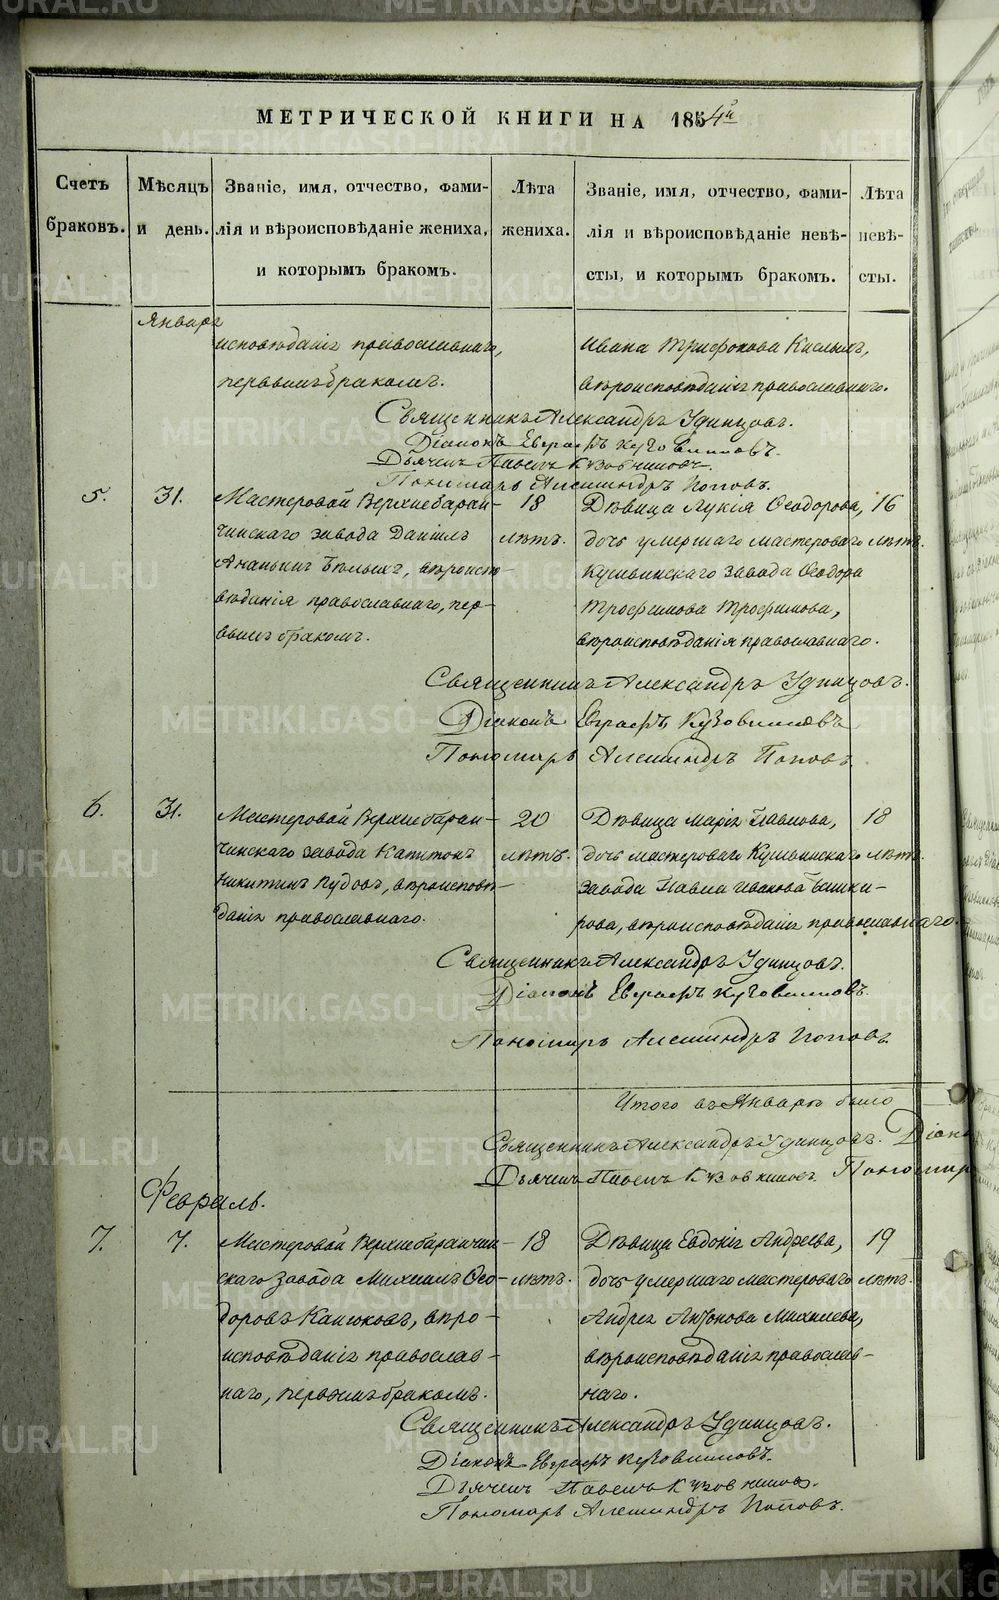 МЕТРИЧЕСКОЙ КНИГИ НА 1854й
Счетъ браковъ.
Мѣсяцъ и день.
Званіе, имя, отчество, фами-
лія и вѣроисповѣданіе жениха,
и которымъ бракомъ.
Лѣта жениха.
Званіе, имя, отчество, фами-
лія и вѣроисповѣданіе невѣ-
сты, и которымъ бракомъ.
Лѣта невѣ-
сты.
Январь
исповѣданія православнаго,
первымъ бракомъ.
Ивана Трифонова Кислыхъ,
вѣроисповѣданія православнаго.
Священникъ Александръ Удинцовъ.
Діаконъ Евграфъ Кузовниковъ.
Дьячекъ Павелъ Кузовниковъ.
Пономарь Александръ Поповъ.
5.
31.
Мастеровой Верхнебаран-
чинскаго завода Даніилъ
Ананьинъ Бѣлыхъ, вѣроиспо-
вѣданія православнаго, пер-
вымъ бракомъ.
18
лѣтъ.
Дѣвица Лукія Ѳеодорова,
дочь умершаго мастероваго
Кушвинскаго завода Ѳеодора
Трофимова Трофимова,
вѣроисповѣданія православнаго.
16
лѣтъ.
Священникъ Александръ Удинцовъ.
Діаконъ Евграфъ Кузовниковъ
Пономарь Александръ Поповъ.
6.
31.
Мастеровой Верхнебаран-
чинскаго завода Капитонъ
Никитинъ, вѣроисповѣ-
данія православнаго.
20
лѣтъ.
Дѣвица Марія Павлова,
дочь мастероваго Кушвинскаго
завода Павла Иванова Башки-
рова, вѣроисповѣданія православнаго.
18
лѣтъ.
Священникъ Александръ Удинцовъ.
Діаконъ Евграфъ Кузовниковъ.
Пономарь Александръ Поповъ.
Итого въ Январѣ было
Священникъ Александръ Удинцовъ. Діако
Дьячекъ Павелъ Кузовниковъ. Пономарь
Февраль.
7.
7.
Мастеровой Верхнебаранчин-
скаго завода Михаилъ Ѳео-
доровъ, вѣро-
исповѣданія православ-
наго, первымъ бракомъ.
18
лѣтъ.
Дѣвица Евдокія Андреева,
дочь умершаго мастероваго
Андрея Антонова Михалева,
вѣроисповѣданія православ-
наго.
19
лѣтъ.
Священникъ Александръ Удинцовъ.
Діаконъ Евграфъ Кузовниковъ.
Дьячекъ Павелъ Кузовниковъ.
Пономарь Александръ Поповъ.
METRIKI.GASO-URAL.RU